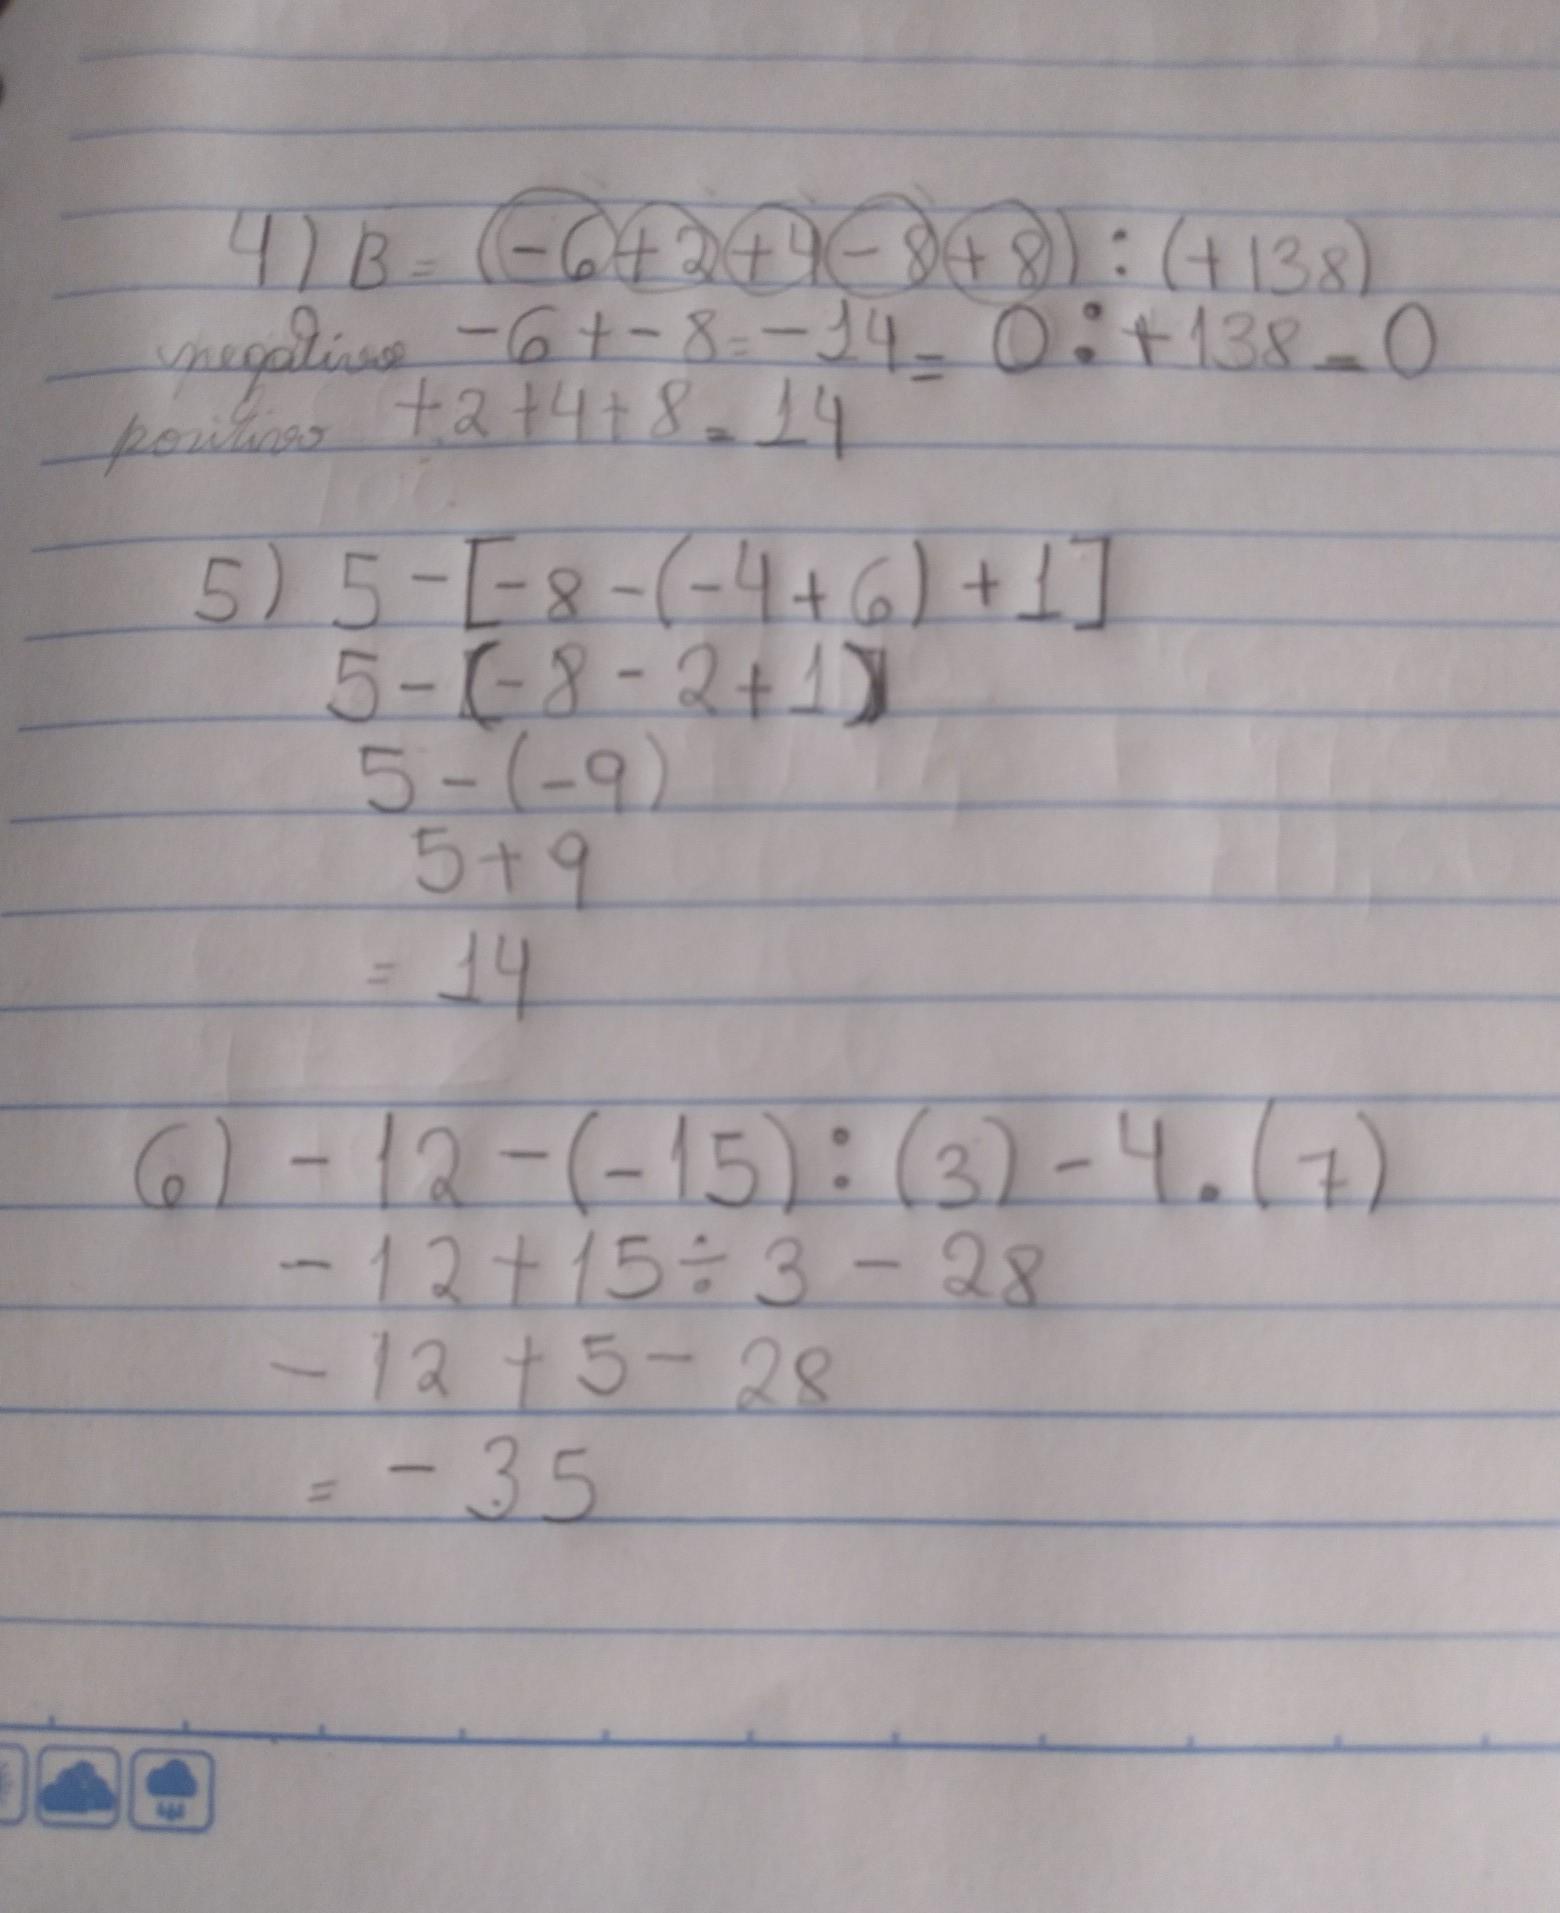 4) B = (-6+2+4-8+8) : (+138)
negativos -6+-8=-14= 0:+138=0
positivos +2+4+8=14
5) 5-[-8-(-4+6)+1]
5-[-8-2+1]
5-(-9)
5+9
= 14
6) -12-(-15):(3)-4.(7)
-12+15÷3-28
-12+5-28
= -35